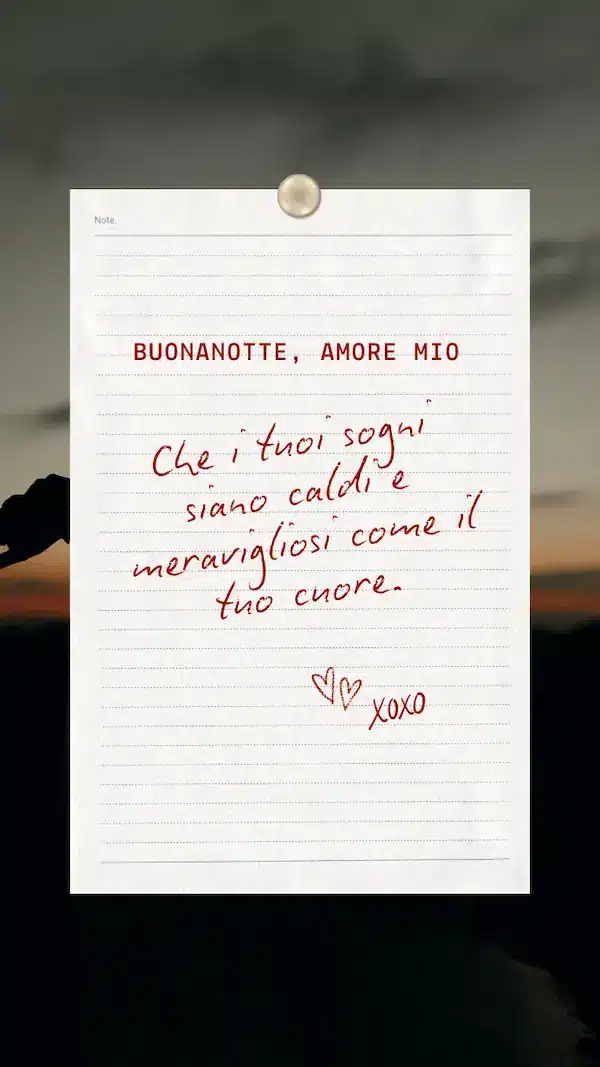 Note.
BUONANOTTE, AMORE MIO
Che i tuoi sogni
siano caldi e
meravigliosi come il
tuo cuore.
xoxo